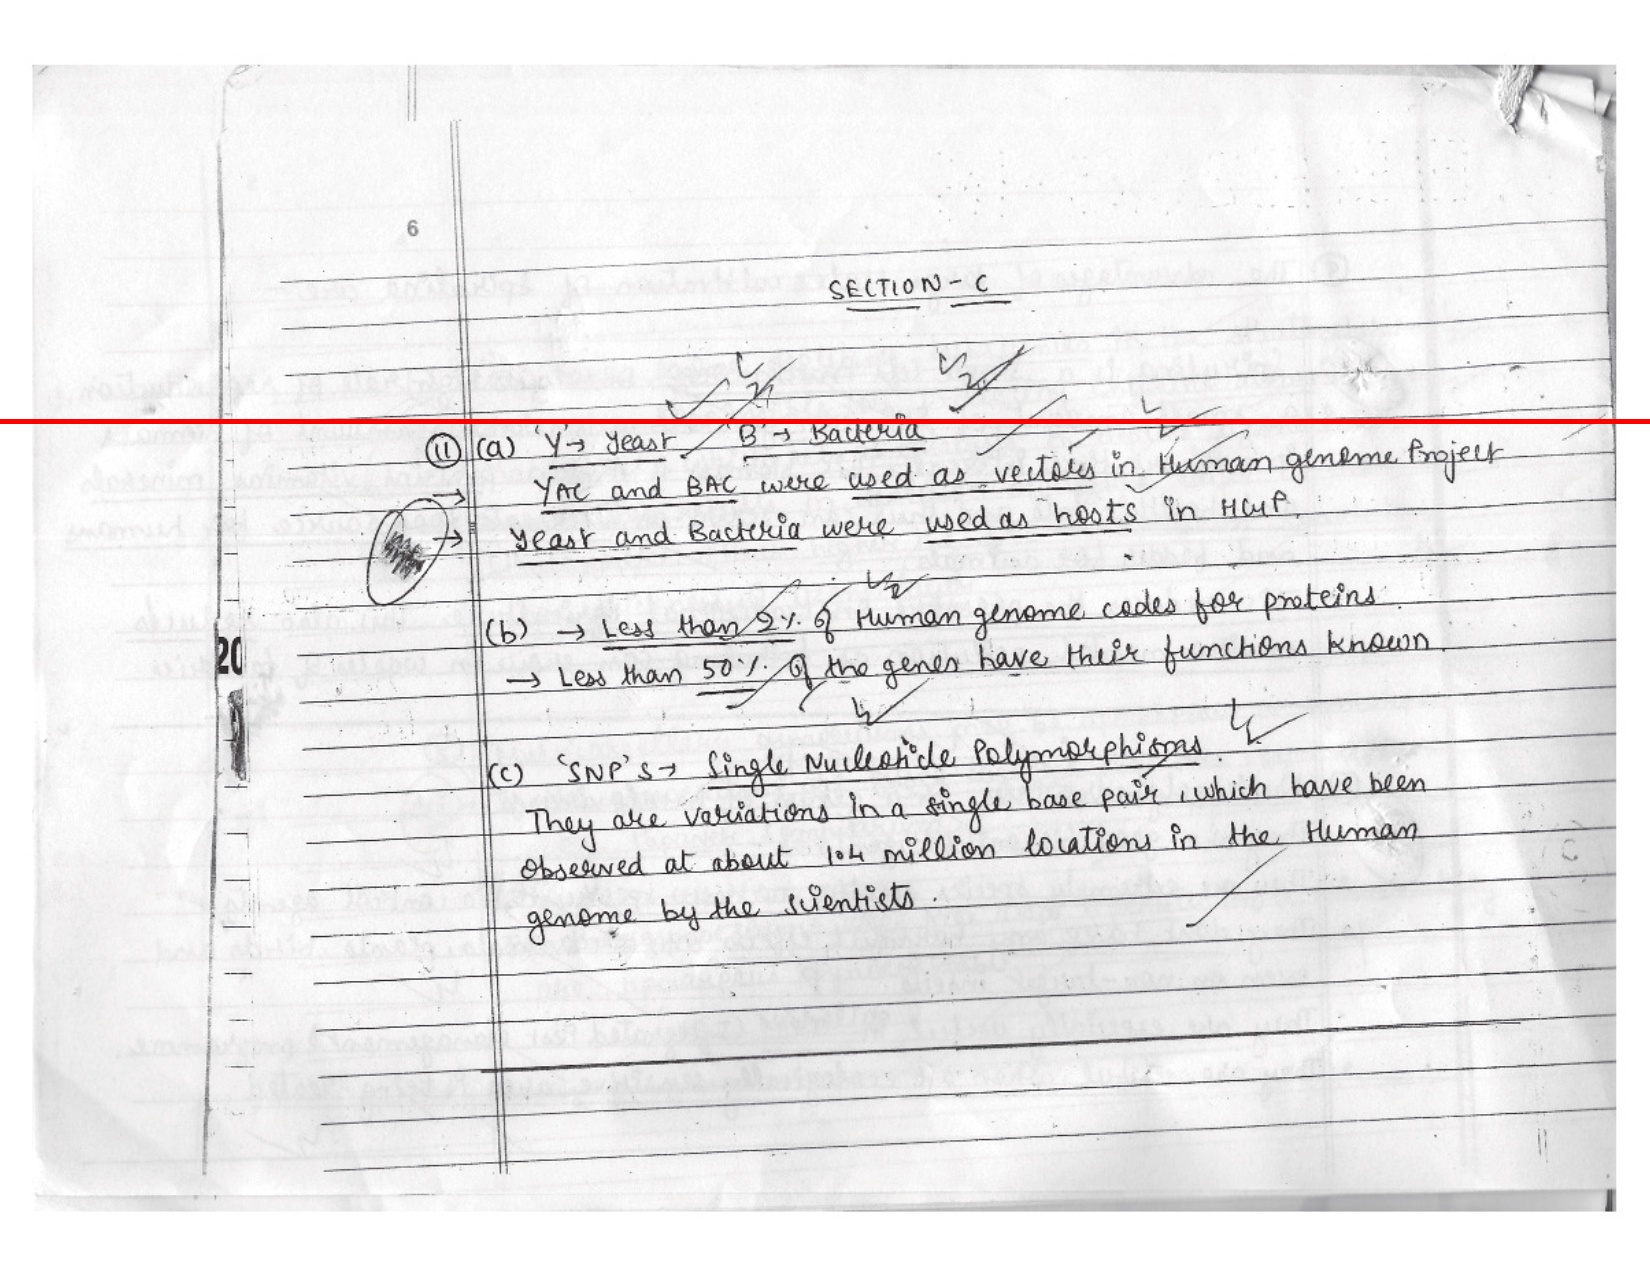 6
SECTION - C
(11) (a) 'Y' → Yeast 'B' → Bacteria
YAC and BAC were used as vectors in Human genome Project
→ Yeast and Bacteria were used as hosts in HGP.
(b) → Less than 2% of Human genome codes for proteins.
→ Less than 50% of the genes have their functions known.
(c) 'SNP'S → Single Nucleotide Polymorphisms.
They are variations in a single base pair, which have been
Observed at about 1.4 million locations in the Human
genome by the scientists.
20